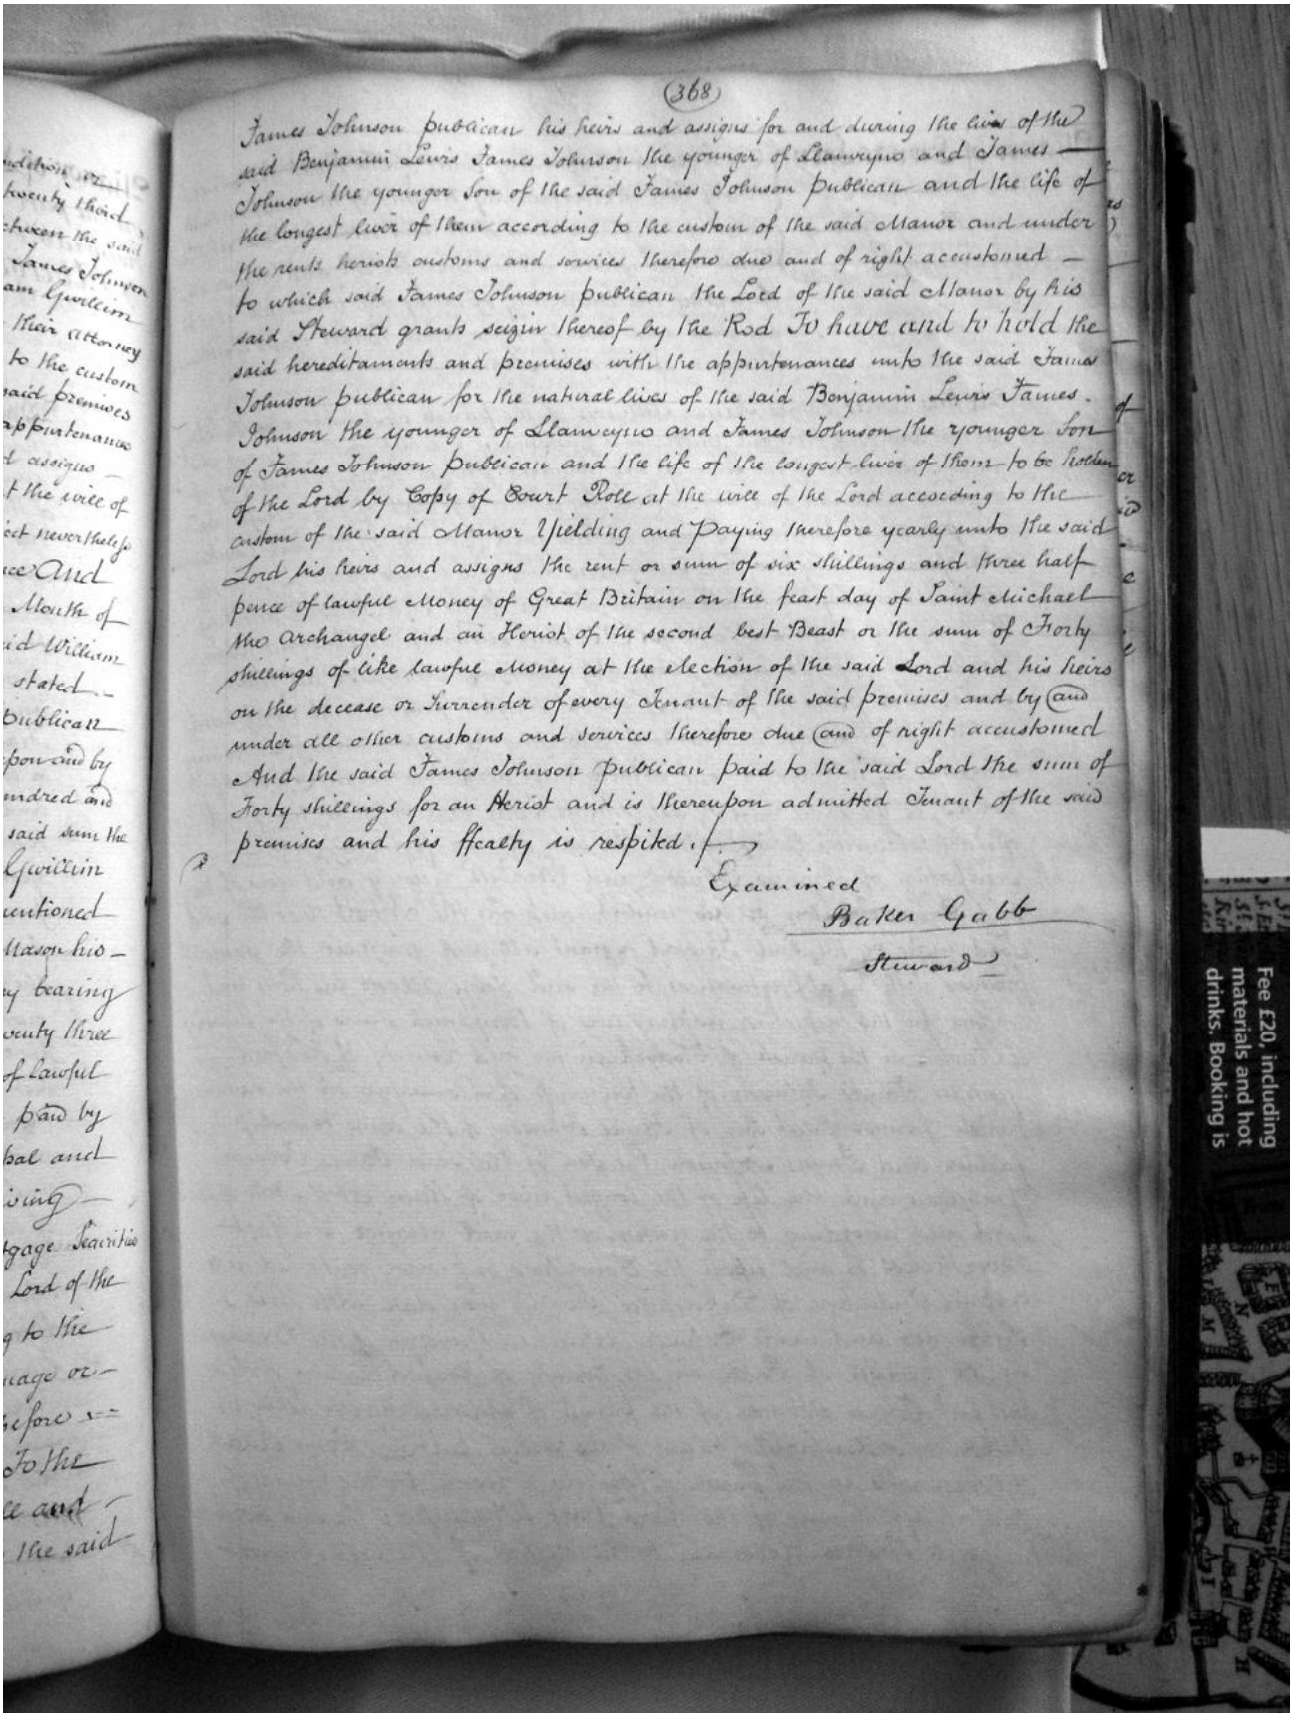 ndition or
twenty third
etween the said
James Johnson
am Gwillim
their attorney
to the custom
said premises
appurtenances
d assigns —
t the will of
ect nevertheless
ce And
Month of
id William
stated —
publican
pon and by
undred and
said sum the
Gwillim
mentioned
Mason his —
ey bearing
wenty three
of lawful
paid by
pal and
iving —
tgage Securities
Lord of the
g to the
uage or —
before
To the
ll and —
the said
(368)
James Johnson publican his heirs and assigns for and during the lives of the
said Benjamin Lewis James Johnson the younger of Llanveyno and James —
Johnson the younger Son of the said James Johnson publican and the life of
the longest liver of them according to the custom of the said Manor and under
the rents heriots customs and services therefore due and of right accustomed —
to which said James Johnson publican the Lord of the said Manor by his
said Steward grants seizin thereof by the Rod To have and to hold the
said hereditaments and premises with the appurtenances unto the said James
Johnson publican for the natural lives of the said Benjamin Lewis James
Johnson the younger of Llanveyno and James Johnson the younger Son
of James Johnson publican and the life of the longest liver of them to be holden
of the Lord by Copy of Court Roll at the will of the Lord according to the
custom of the said Manor Yielding and Paying therefore yearly unto the said
Lord his heirs and assigns the rent or sum of six shillings and three half
pence of lawful Money of Great Britain on the feast day of Saint Michael
the Archangel and an Heriot of the second best Beast or the sum of Forty
shillings of like lawful Money at the election of the said Lord and his heirs
on the decease or Surrender of every Tenant of the said premises and by and
under all other customs and services therefore due and of right accustomed
And the said James Johnson publican paid to the said Lord the sum of
Forty shillings for an Heriot and is thereupon admitted Tenant of the said
premises and his ffealty is respited.
Examined
Baker Gabb
Steward
Fee £20, including
materials and hot
drinks. Booking is